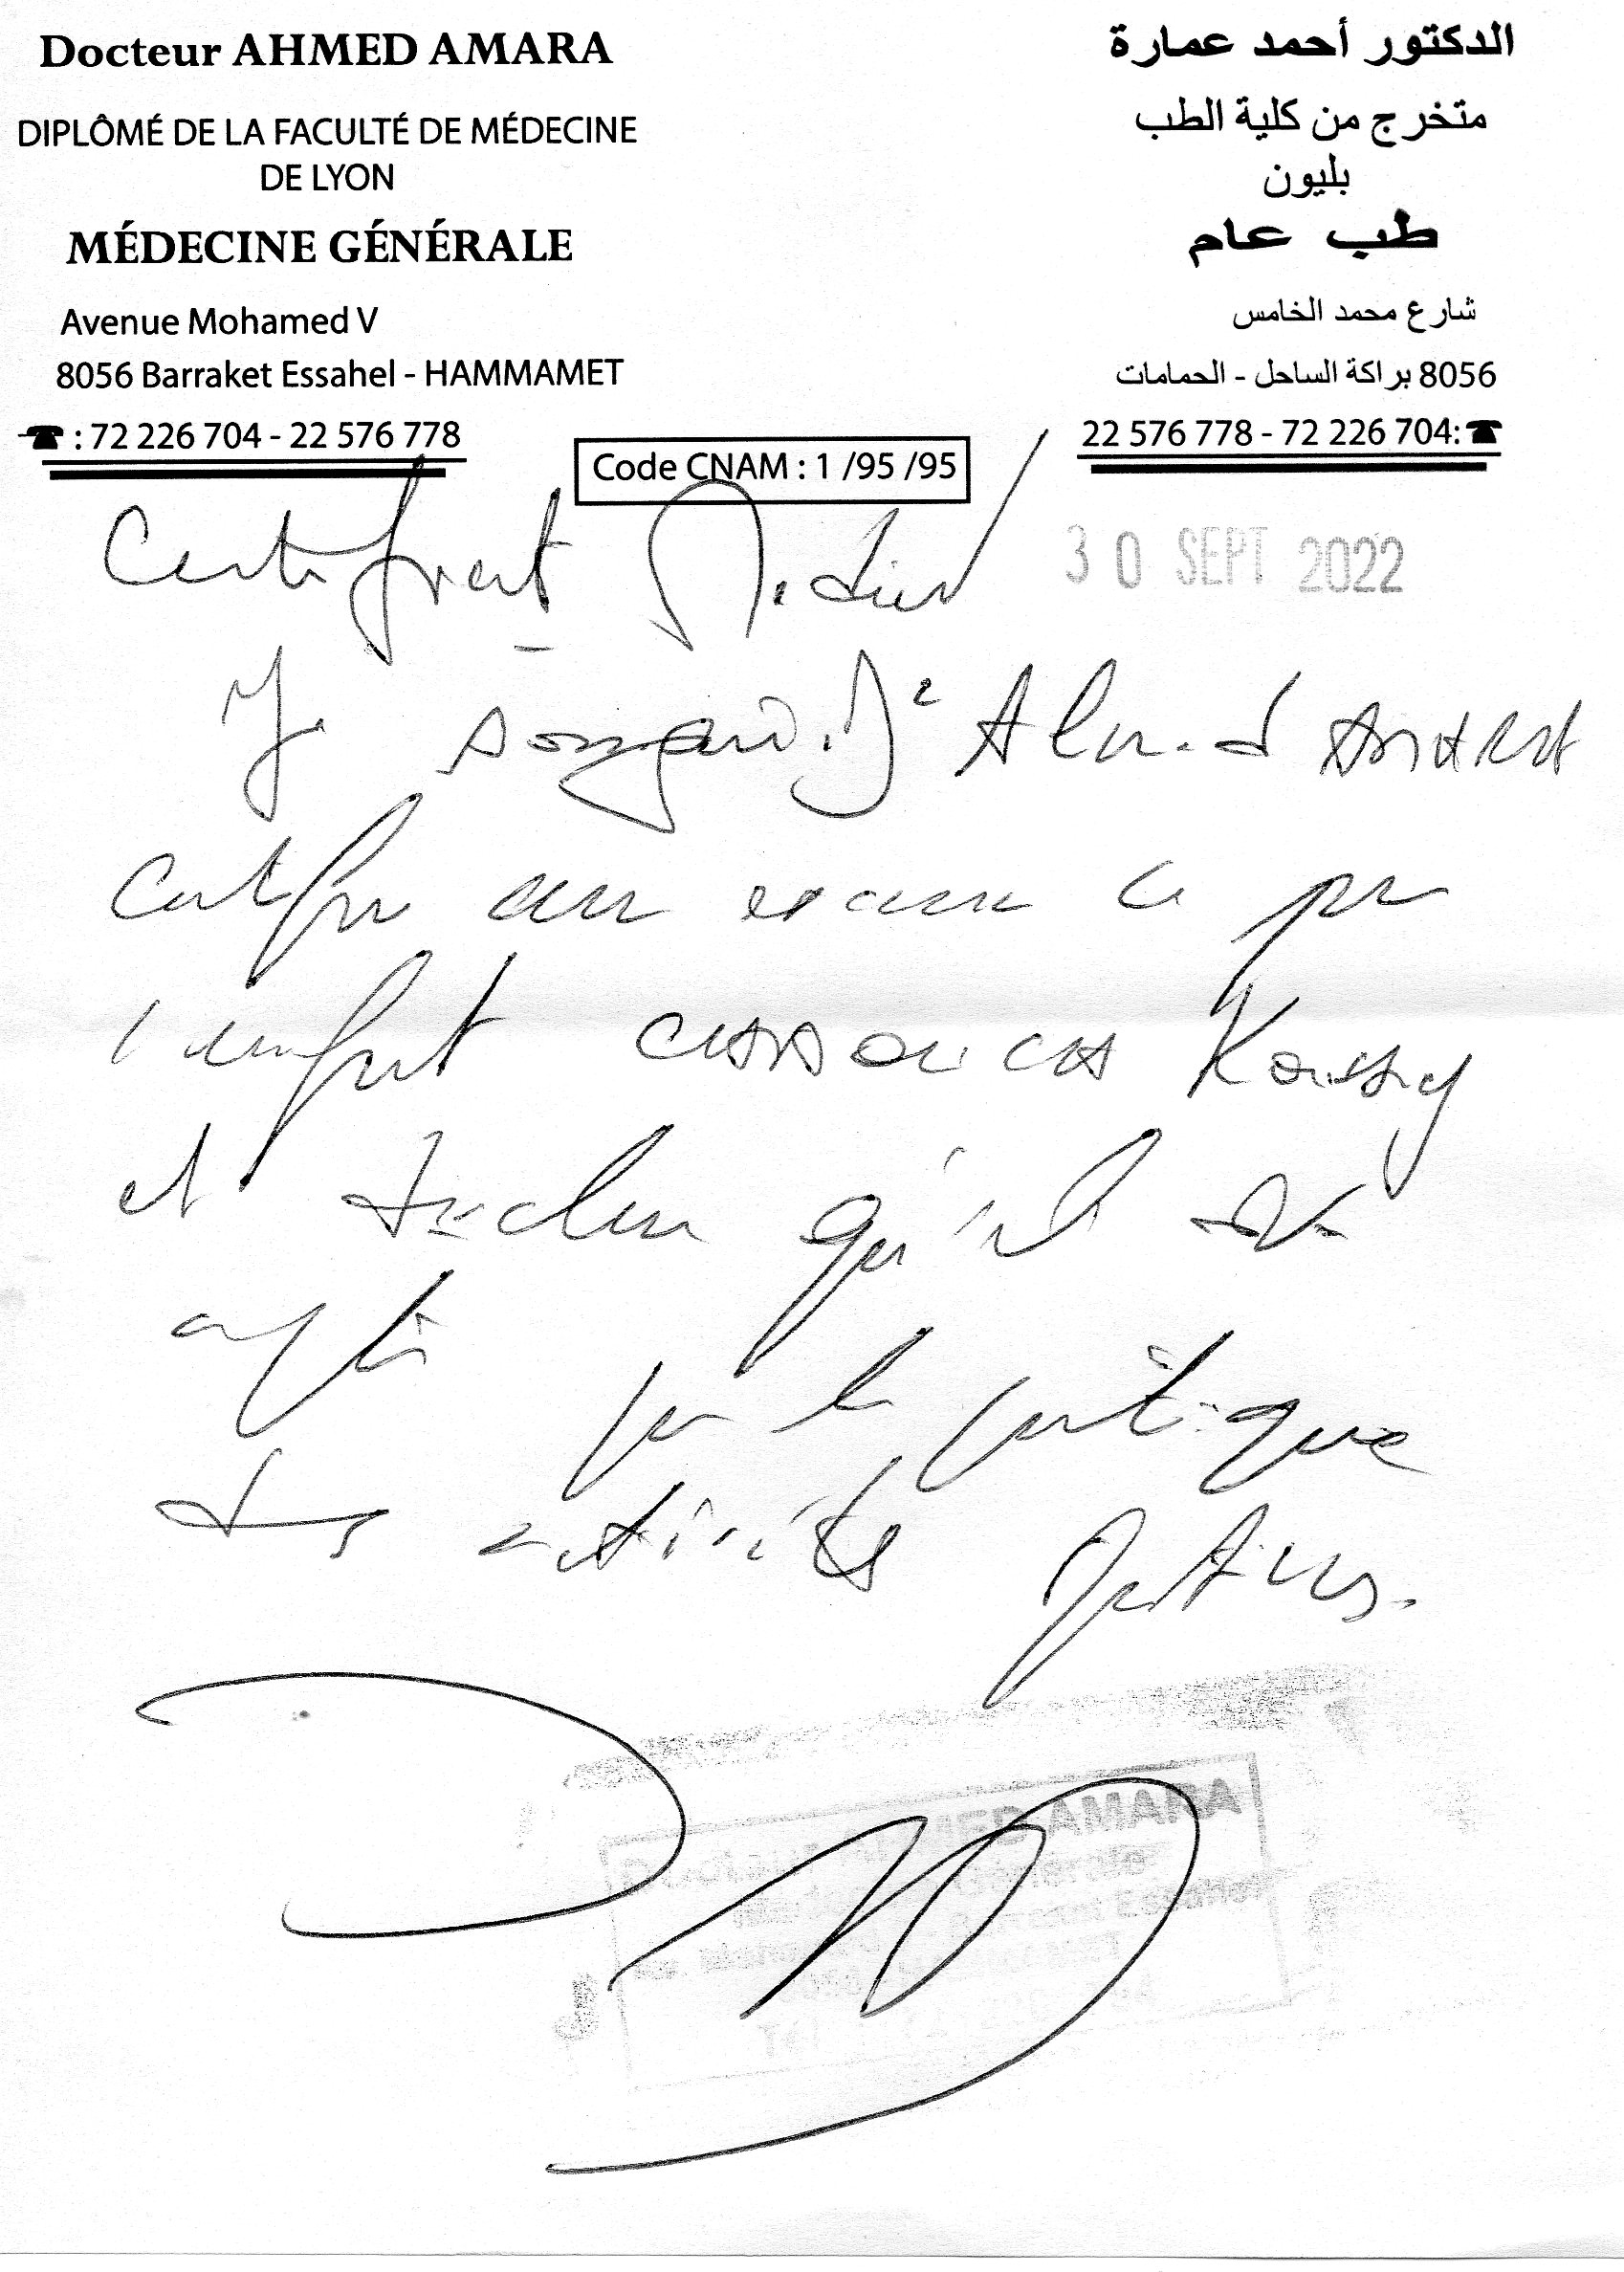 Docteur AHMED AMARA
DIPLÔMÉ DE LA FACULTÉ DE MÉDECINE
DE LYON
MÉDECINE GÉNÉRALE
Avenue Mohamed V
8056 Barraket Essahel - HAMMAMET
☎ : 72 226 704 - 22 576 778
الدكتور أحمد عمارة
متخرج من كلية الطب
بليون
طب عام
شارع محمد الخامس
8056 براكة الساحل - الحمامات
22 576 778 - 72 226 704:☎
Code CNAM : 1 /95 /95
30 SEPT 2022
Certificat Médical
Je soussigné Dr Ahmed AMARA
certifie avoir examiné ce jour
l'enfant
et déclare qu'il est
apte pour la pratique
des activités sportives.
MED AMARA